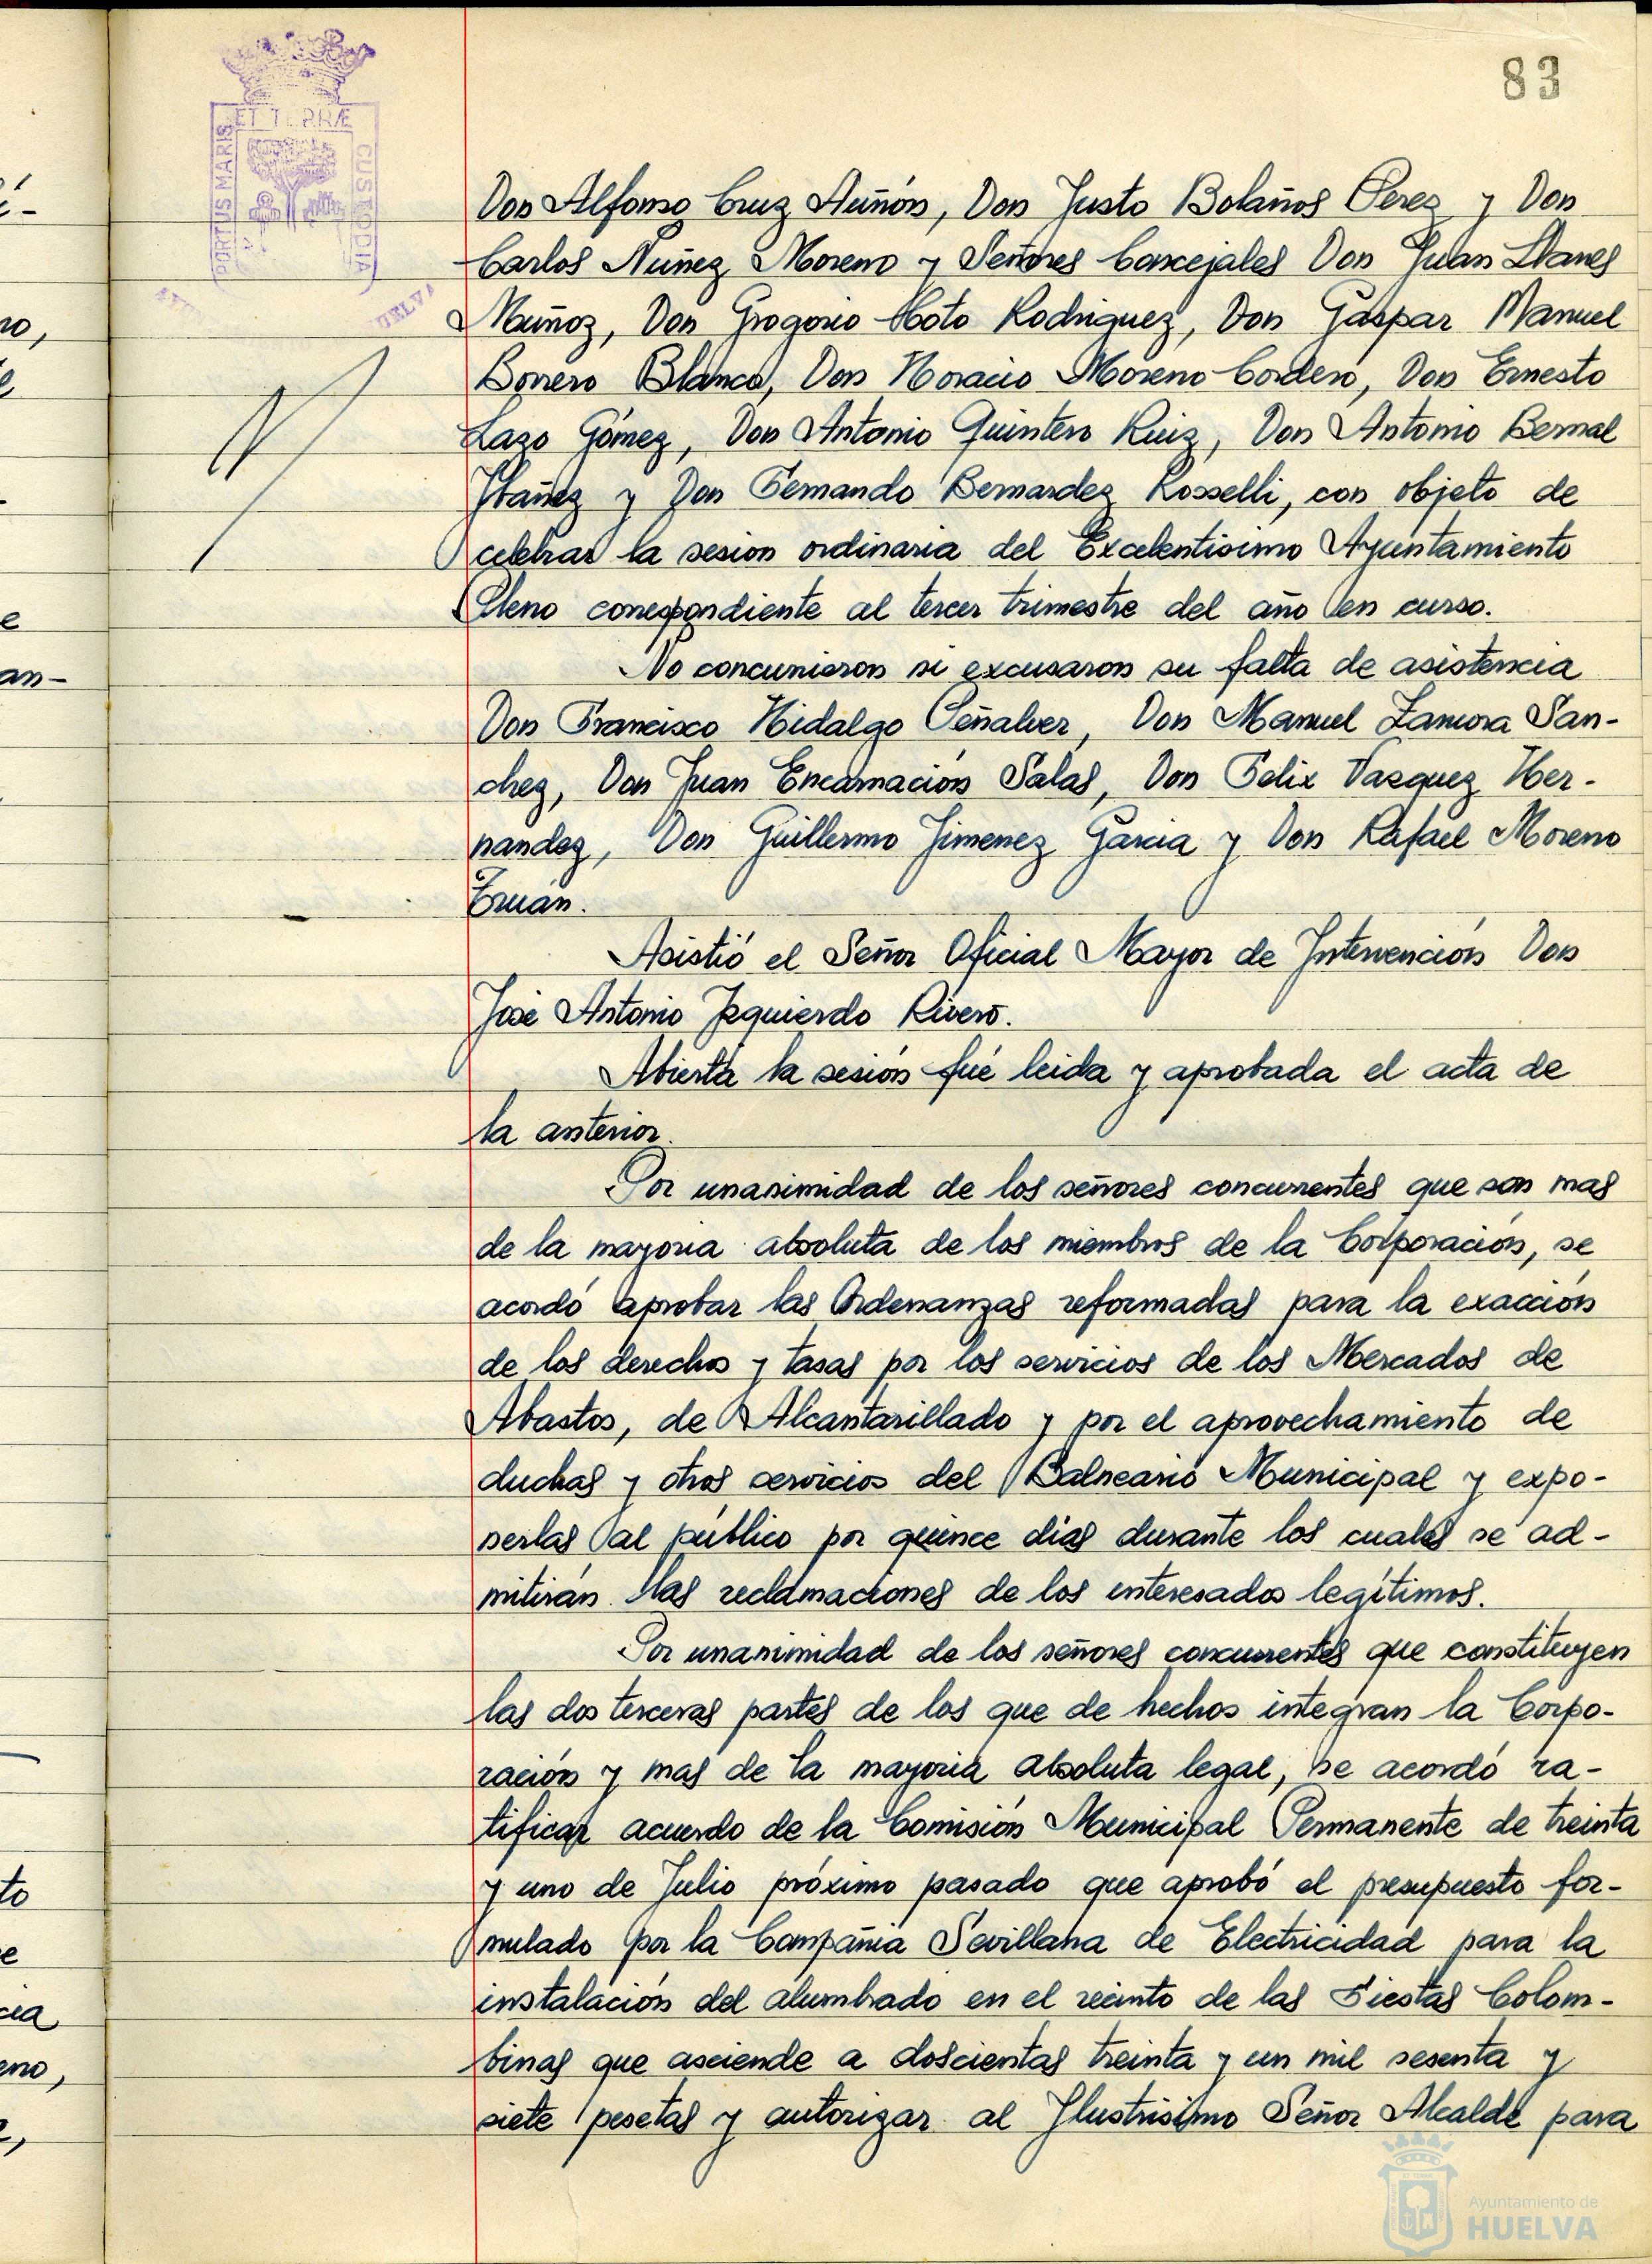 83
ET TERRÆ
PORTUS MARIS
CUSTODIA
HUELVA
Don Alfonso Cruz Auñón, Don Justo Bolaños Perez y Don
Carlos Nuñez Moreno y Señores Concejales Don Juan Llanes
Muñoz, Don Grogorio Soto Rodriguez, Don Gaspar Manuel
Borrero Blanco, Don Horacio Moreno Cordero, Don Ernesto
Lazo Gómez, Don Antonio Quintero Ruiz, Don Antonio Bernal
Ibañez y Don Fernando Bernardez Rosselli, con objeto de
celebrar la sesion ordinaria del Excelentísimo Ayuntamiento
Pleno correspondiente al tercer trimestre del año en curso.
No concurrieron ni excusaron su falta de asistencia
Don Francisco Hidalgo Peñalver, Don Manuel Zamora San-
chez, Don Juan Encarnación Salas, Don Felix Vazquez Her-
nandez, Don Guillermo Jimenez Garcia y Don Rafael Moreno
Asistió el Señor Oficial Mayor de Intervención Don
José Antonio Izquierdo Rivero.
Abierta la sesión fué leida y aprobada el acta de
la anterior.
Por unanimidad de los señores concurrentes que son mas
de la mayoria absoluta de los miembros de la Corporación, se
acordó aprobar las Ordenanzas reformadas para la exacción
de los derechos y tasas por los servicios de los Mercados de
Abastos, de Alcantarillado y por el aprovechamiento de
duchas y otros servicios del Balneario Municipal y expo-
nerlas al público por quince días durante los cuales se ad-
mitirán las reclamaciones de los interesados legítimos.
Por unanimidad de los señores concurrentes que constituyen
las dos terceras partes de los que de hechos integran la Corpo-
ración y mas de la mayoria absoluta legal, se acordó ra-
tificar acuerdo de la Comisión Municipal Permanente de treinta
y uno de Julio próximo pasado que aprobó el presupuesto for-
mulado por la Compañia Sevillana de Electricidad para la
instalación del alumbrado en el recinto de las Fiestas Colom-
binas que asciende a doscientas treinta y un mil sesenta y
siete pesetas y autorizar al Ilustrísimo Señor Alcalde para
Ayuntamiento de
HUELVA